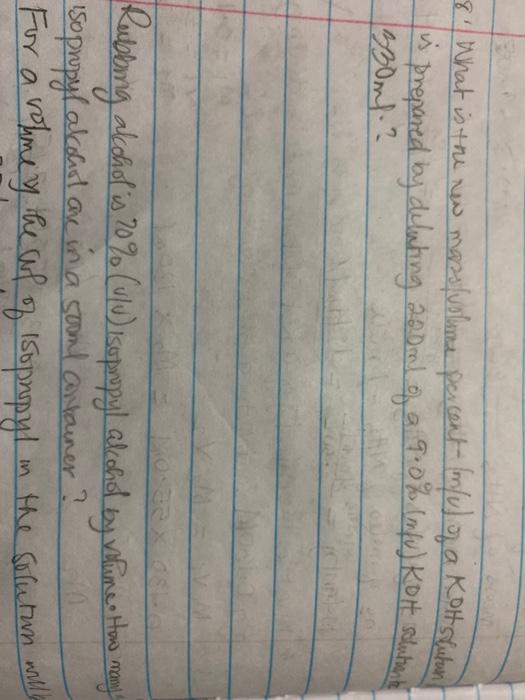 8' What is the new mass/volume percent (m/v) of a KOH solution
is prepared by diluting 220ml of a 9.0% (m/v) KOH solution to
330ml?
Rubbing alcohol is 70% (v/v) isopropyl alcohol by volume. How many
isopropyl alcohol are in a 500ml container?
For a volume of the of isopropyl in the solution will